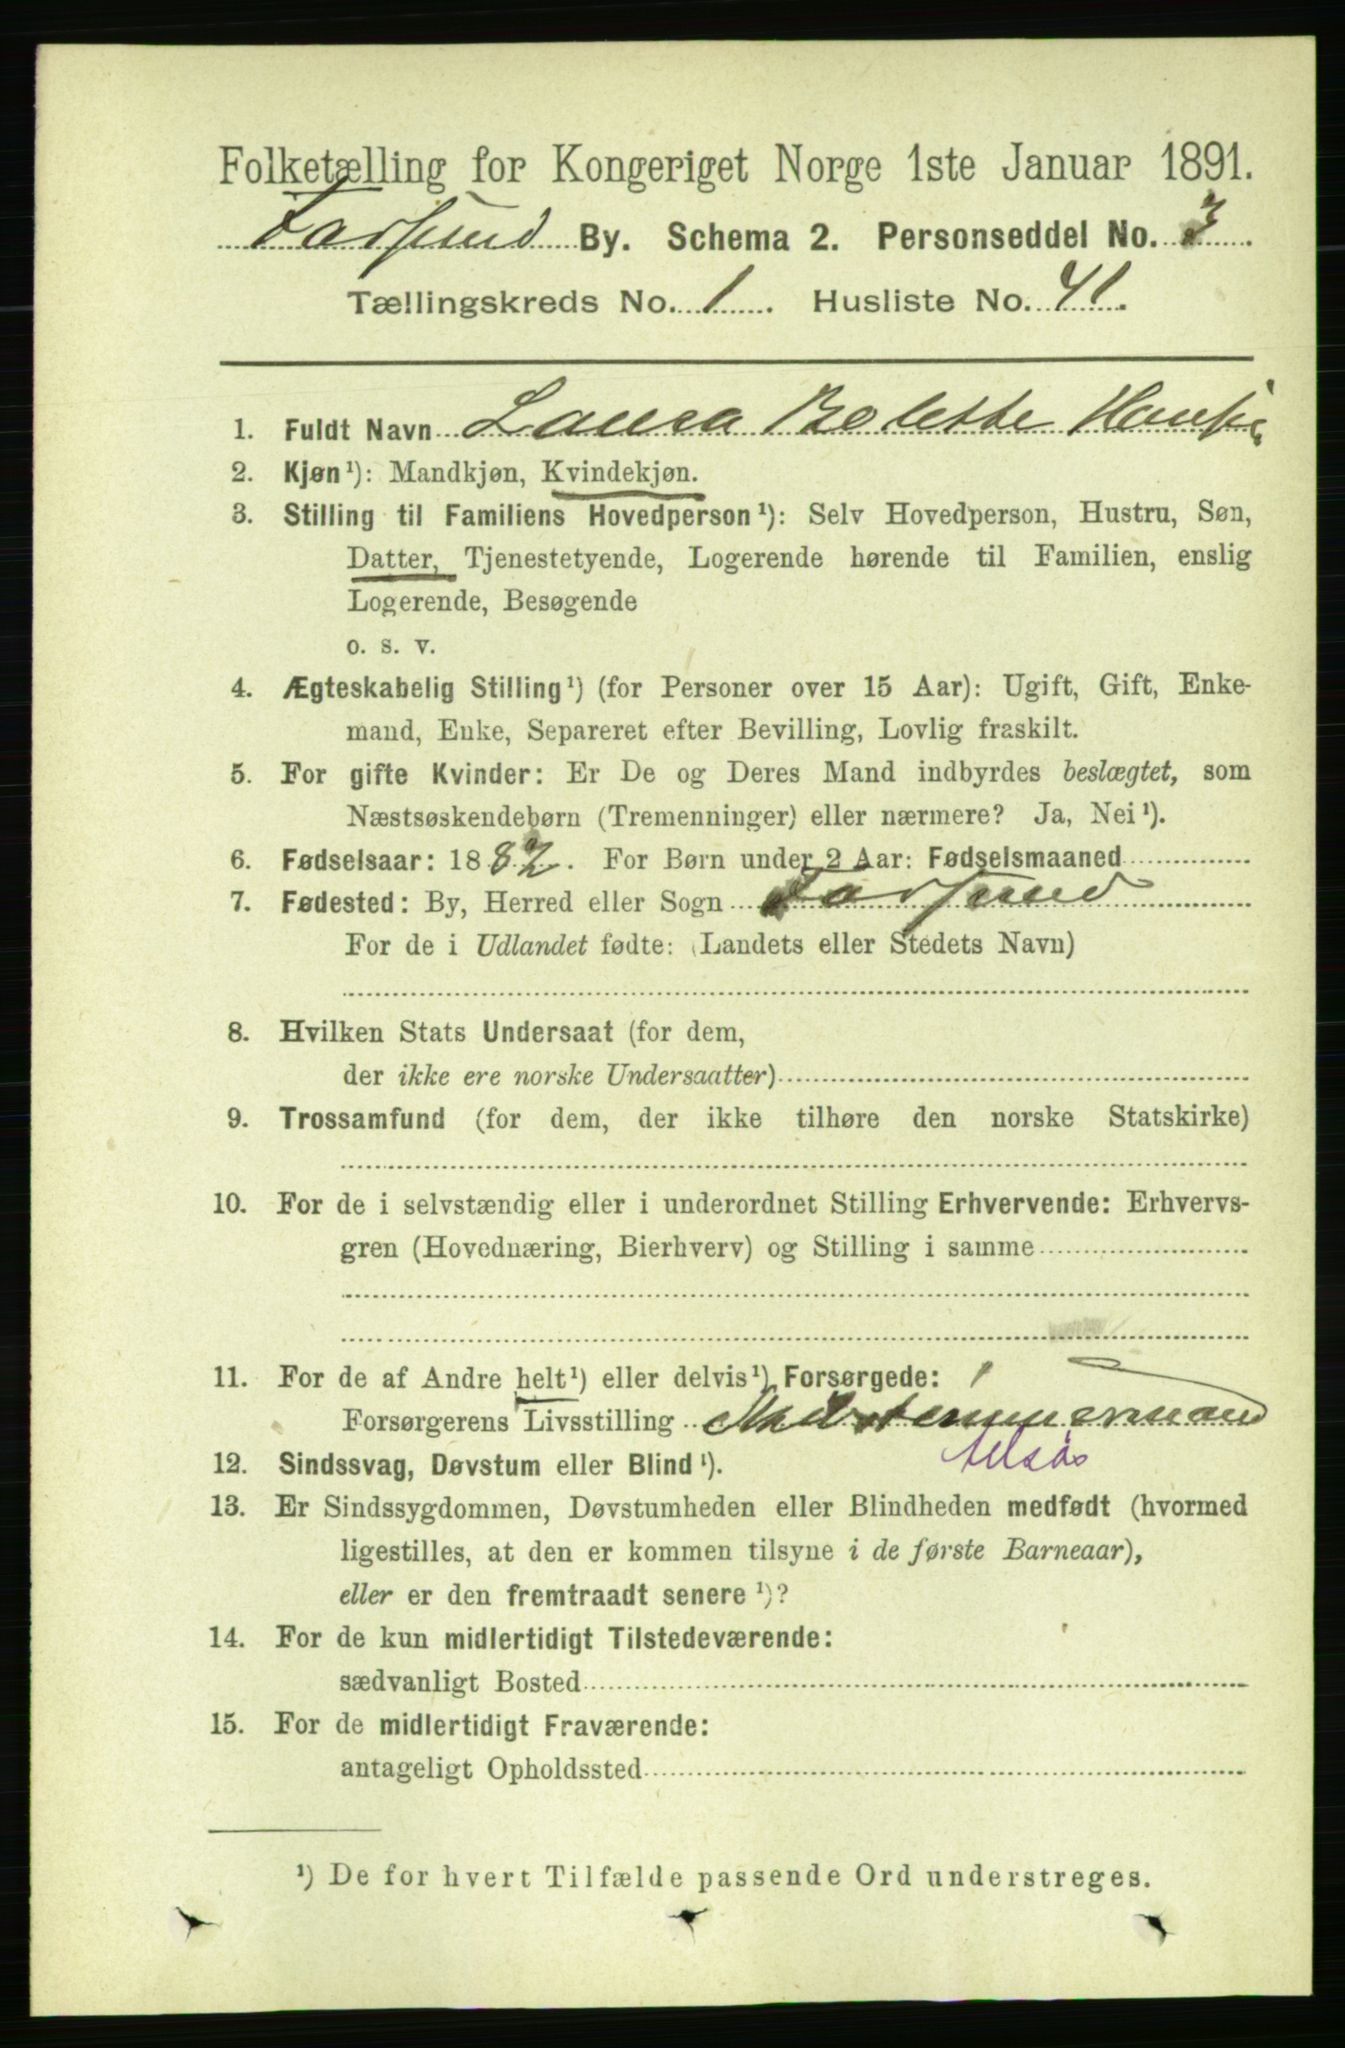 Folketælling for Kongeriget Norge 1ste Januar 1891.
Farsund By. Schema 2. Personseddel No. 3.
Tællingskreds No. 1. Husliste No. 41.
1. Fuldt Navn Laura Bolette
2. Kjøn¹): Mandkjøn, Kvindekjøn.
3. Stilling til Familiens Hovedperson¹): Selv Hovedperson, Hustru, Søn,
Datter, Tjenestetyende, Logerende hørende til Familien, enslig
Logerende, Besøgende
o. s. v.
4. Ægteskabelig Stilling¹) (for Personer over 15 Aar): Ugift, Gift, Enke-
mand, Enke, Separeret efter Bevilling, Lovlig fraskilt.
5. For gifte Kvinder: Er De og Deres Mand indbyrdes beslægtet, som
Næstsøskendebørn (Tremenninger) eller nærmere? Ja, Nei¹).
6. Fødselsaar: 1882. For Børn under 2 Aar: Fødselsmaaned
7. Fødested: By, Herred eller Sogn Farsund
For de i Udlandet fødte: (Landets eller Stedets Navn)
8. Hvilken Stats Undersaat (for dem,
der ikke ere norske Undersaatter)
9. Trossamfund (for dem, der ikke tilhøre den norske Statskirke)
10. For de i selvstændig eller i underordnet Stilling Erhvervende: Erhvervs-
gren (Hovednæring, Bierhverv) og Stilling i samme
11. For de af Andre helt¹) eller delvis¹) Forsørgede:
Forsørgerens Livsstilling
12. Sindssvag, Døvstum eller Blind¹).
13. Er Sindssygdommen, Døvstumheden eller Blindheden medfødt (hvormed
ligestilles, at den er kommen tilsyne i de første Barneaar),
eller er den fremtraadt senere¹)?
14. For de kun midlertidigt Tilstedeværende:
sædvanligt Bosted
15. For de midlertidigt Fraværende:
antageligt Opholdssted
¹) De for hvert Tilfælde passende Ord understreges.